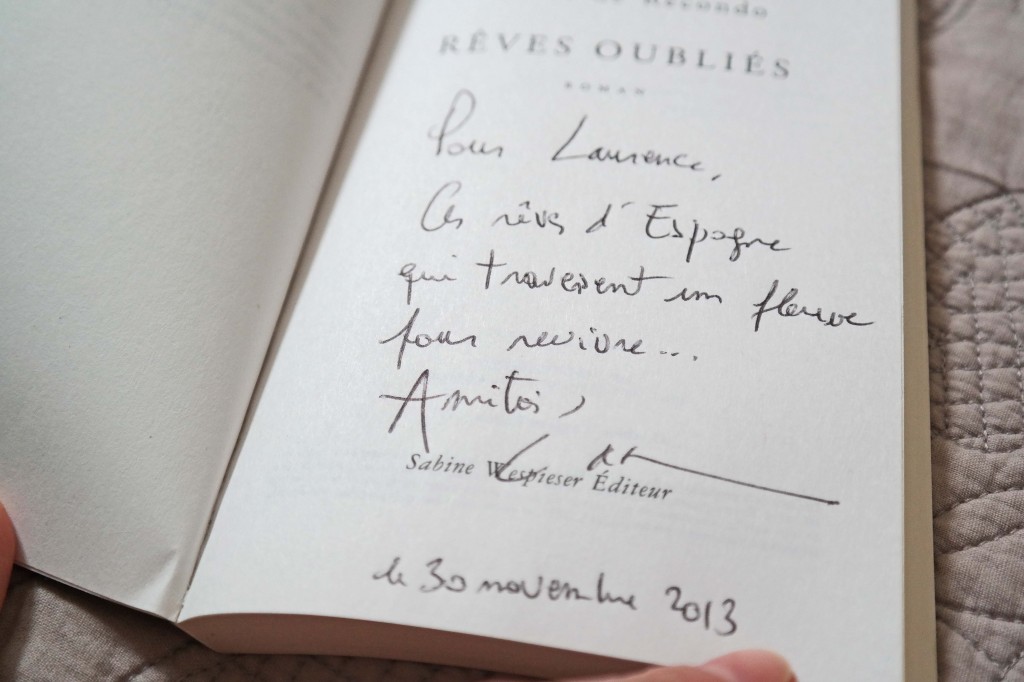 Recondo
RÊVES OUBLIÉS
ROMAN
Pour Laurence,
Ces rêves d'Espagne
qui traversent un fleuve
pour revivre...
Amitiés,
Sabine Wespieser Éditeur
le 30 novembre 2013